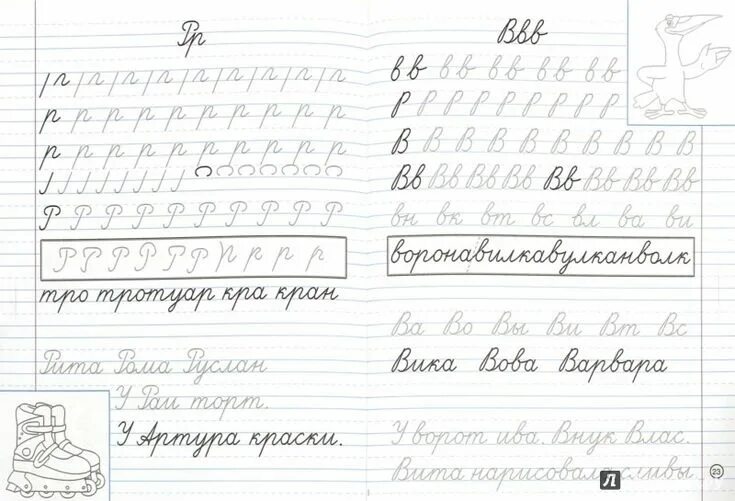 Рр
р р р р р р р р р р
р р р р р р р р р р
Р Р Р Р Р Р Р Р Р
Р Р Р Р Р Р р р р р
тро тротуар кра кран
Рита Рома Руслан
У Раи торт.
У Артура краски.
Ввв
в в в в в в в в в в
Р Р Р Р Р Р Р Р Р
В В В В В В В В В В
Вв Вв Вв Вв Вв Вв Вв Вв
вн вк вт вс вл ва ви
воронавилкавулканволк
Ва Во Вы Ви Вт Вс
Вика Вова Варвара
У ворот ива. Внук Влас.
Вита нарисовала сливы.
23
Л